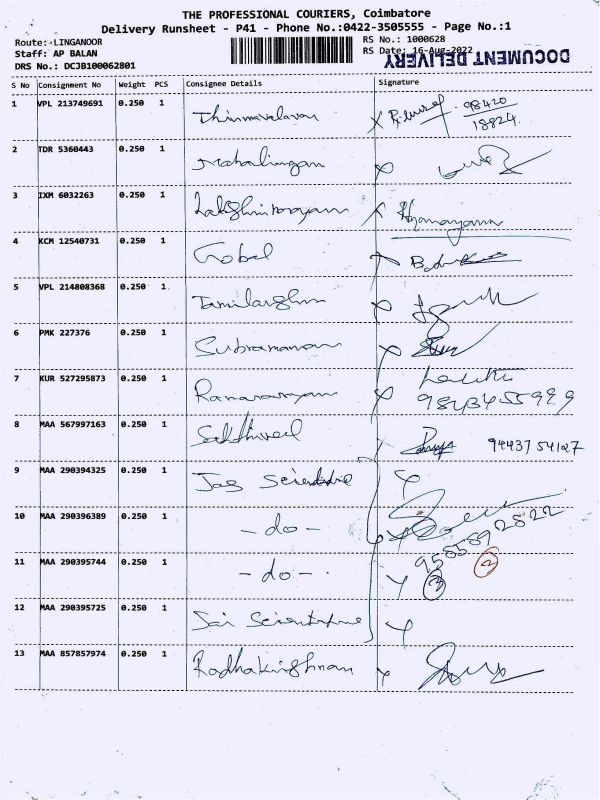 THE PROFESSIONAL COURIERS, Coimbatore
Delivery Runsheet - P41 - Phone No.:0422-3505555 - Page No.:1
Route: LINGANOOR
RS No.: 1000628
Staff: AP BALAN
RS Date: 16-Aug-2022
DOCUMENT DELIVERY
DRS No.: DCJB100062801
S No Consignment No Weight PCS Consignee Details Signature
1 VPL 213749691 0.250 1 98420
18824
2 TDR 5360443 0.250 1 Mahalingam
3 IXM 6032263 0.250 1 Lakshminarayanan
4 KCM 12540731 0.250 1 Gobal
5 VPL 214808368 0.250 1
6 PMK 227376 0.250 1 Subramaniam
7 KUR 527295873 0.250 1 Lalitha
8 MAA 567997163 0.250 1 Sakthivel 94437 54127
9 MAA 290394325 0.250 1 Jas Scientific
10 MAA 290396389 0.250 1 - do - 9585892822
11 MAA 290395744 0.250 1 - do - 3 2
12 MAA 290395725 0.250 1 Sai Scientific
13 MAA 857857974 0.250 1 Radhakrishnan